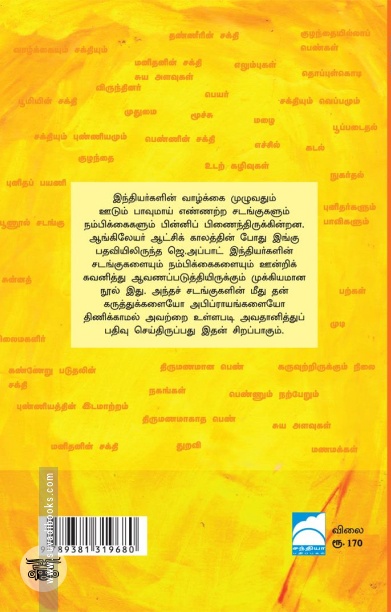 தண்ணீரின் சக்தி
குழந்தையில்லாப்
பெண்கள்
வாழ்க்கையும் சக்தியும்
மனிதனின் சக்தி
எலும்புகள்
சுய அளவுகள்
தொப்புள்கொடி
விருந்தினர்
பூமியின் சக்தி
பெயர்
சக்தியும் வெப்பமும்
முதுமை
மூச்சு
மழை
பூப்படைதல்
சக்தியும் புண்ணியமும்
பெண்ணின் சக்தி
எச்சில்
கடல்
குழந்தை
உடற் கழிவுகள்
நுகர்தல்
புனிதப் பயணி
இந்தியர்களின் வாழ்க்கை முழுவதும்
ஊடும் பாவுமாய் எண்ணற்ற சடங்குகளும்
நம்பிக்கைகளும் பின்னிப் பிணைந்திருக்கின்றன.
ஆங்கிலேயர் ஆட்சிக் காலத்தின் போது இங்கு
பதவியிலிருந்த ஜெ.அப்பாட் இந்தியர்களின்
சடங்குகளையும் நம்பிக்கைகளையும் ஊன்றிக்
கவனித்து ஆவணப்படுத்தியிருக்கும் முக்கியமான
நூல் இது. அந்தச் சடங்குகளின் மீது தன்
கருத்துக்களையோ அபிப்ராயங்களையோ
திணிக்காமல் அவற்றை உள்ளபடி அவதானித்துப்
பதிவு செய்திருப்பது இதன் சிறப்பாகும்.
பூணூல் சடங்கு
புனிதர்களும்
பாவிகளும்
கன்னத்
பற்கள்
முடி
நிலைமகளிர்
கண்ணேறு படுதலின்
சக்தி
திருமணமான பெண்
கருவுற்றிருக்கும் நிலை
நகங்கள்
பெண்ணும் நற்பேறும்
புண்ணியத்தின் இடமாற்றம்
திருமணமாகாத பெண்
சுய அளவுகள்
மனிதனின் சக்தி
துறவி
மணமக்கள்
சந்தியா
விலை
ரூ. 170
9389381319680